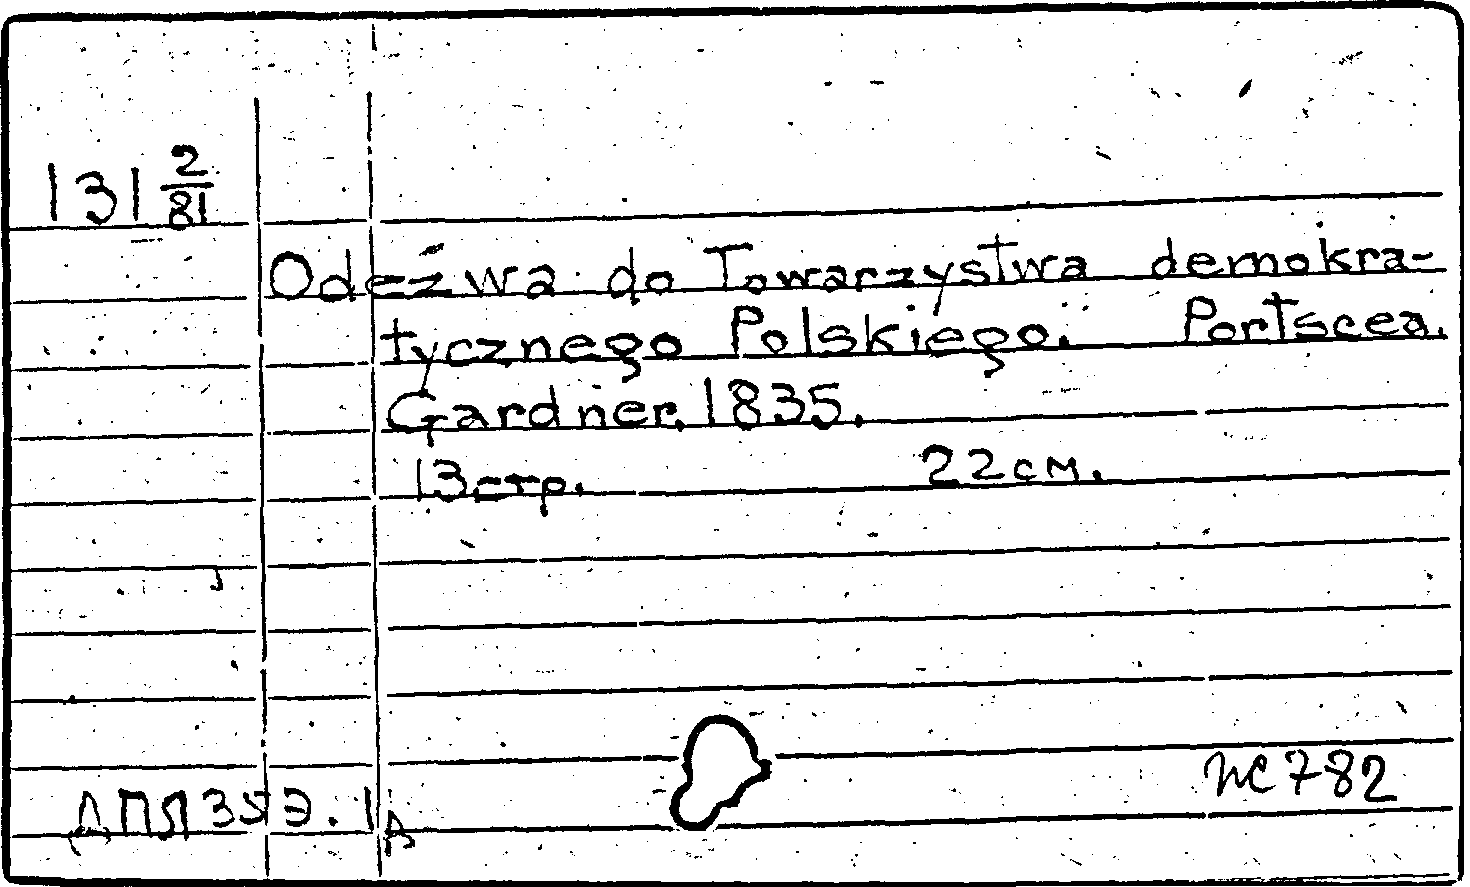 131 2/81
Odeźwa do Towarzystwa demokra-
tycznego Polskiego. Portscea.
Gardner. 1835.
13 стр. 22 см.
ПС 782